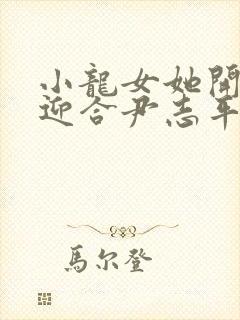 小龍女她開
迎合尹志平
馬尔登